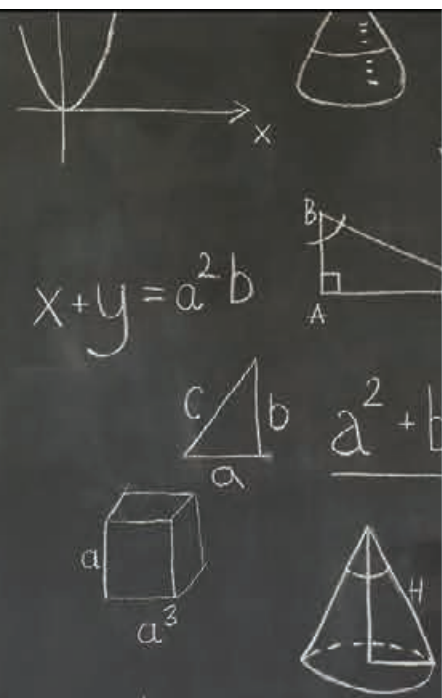 x
B
A
x+y=a²b
c
b
a
a²+b
a
a³
H